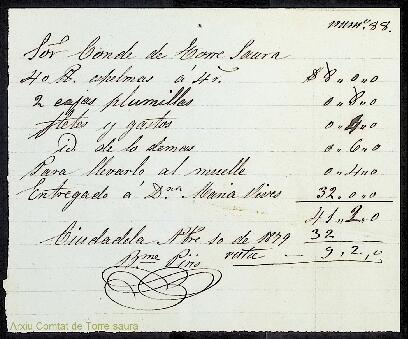 num.º 88.
Sór Conde de Torre Saura
40 lt. espelmas á 4 r. 8 " 0 " 0
2 cajas plumillas 0 " 8 " 0
fletes y gastos 0 " 4 " 0
id de lo demas 0 " 6 " 0
Para llevarlo al muelle 0 " 4 " 0
Entregado á Dña Maria 32 " 0 " 0
41 " 2 " 0
Ciudadela Nbre 10 de 1879 32
resta 9 " 2 " 0
Arxiu Comtat de Torre saura